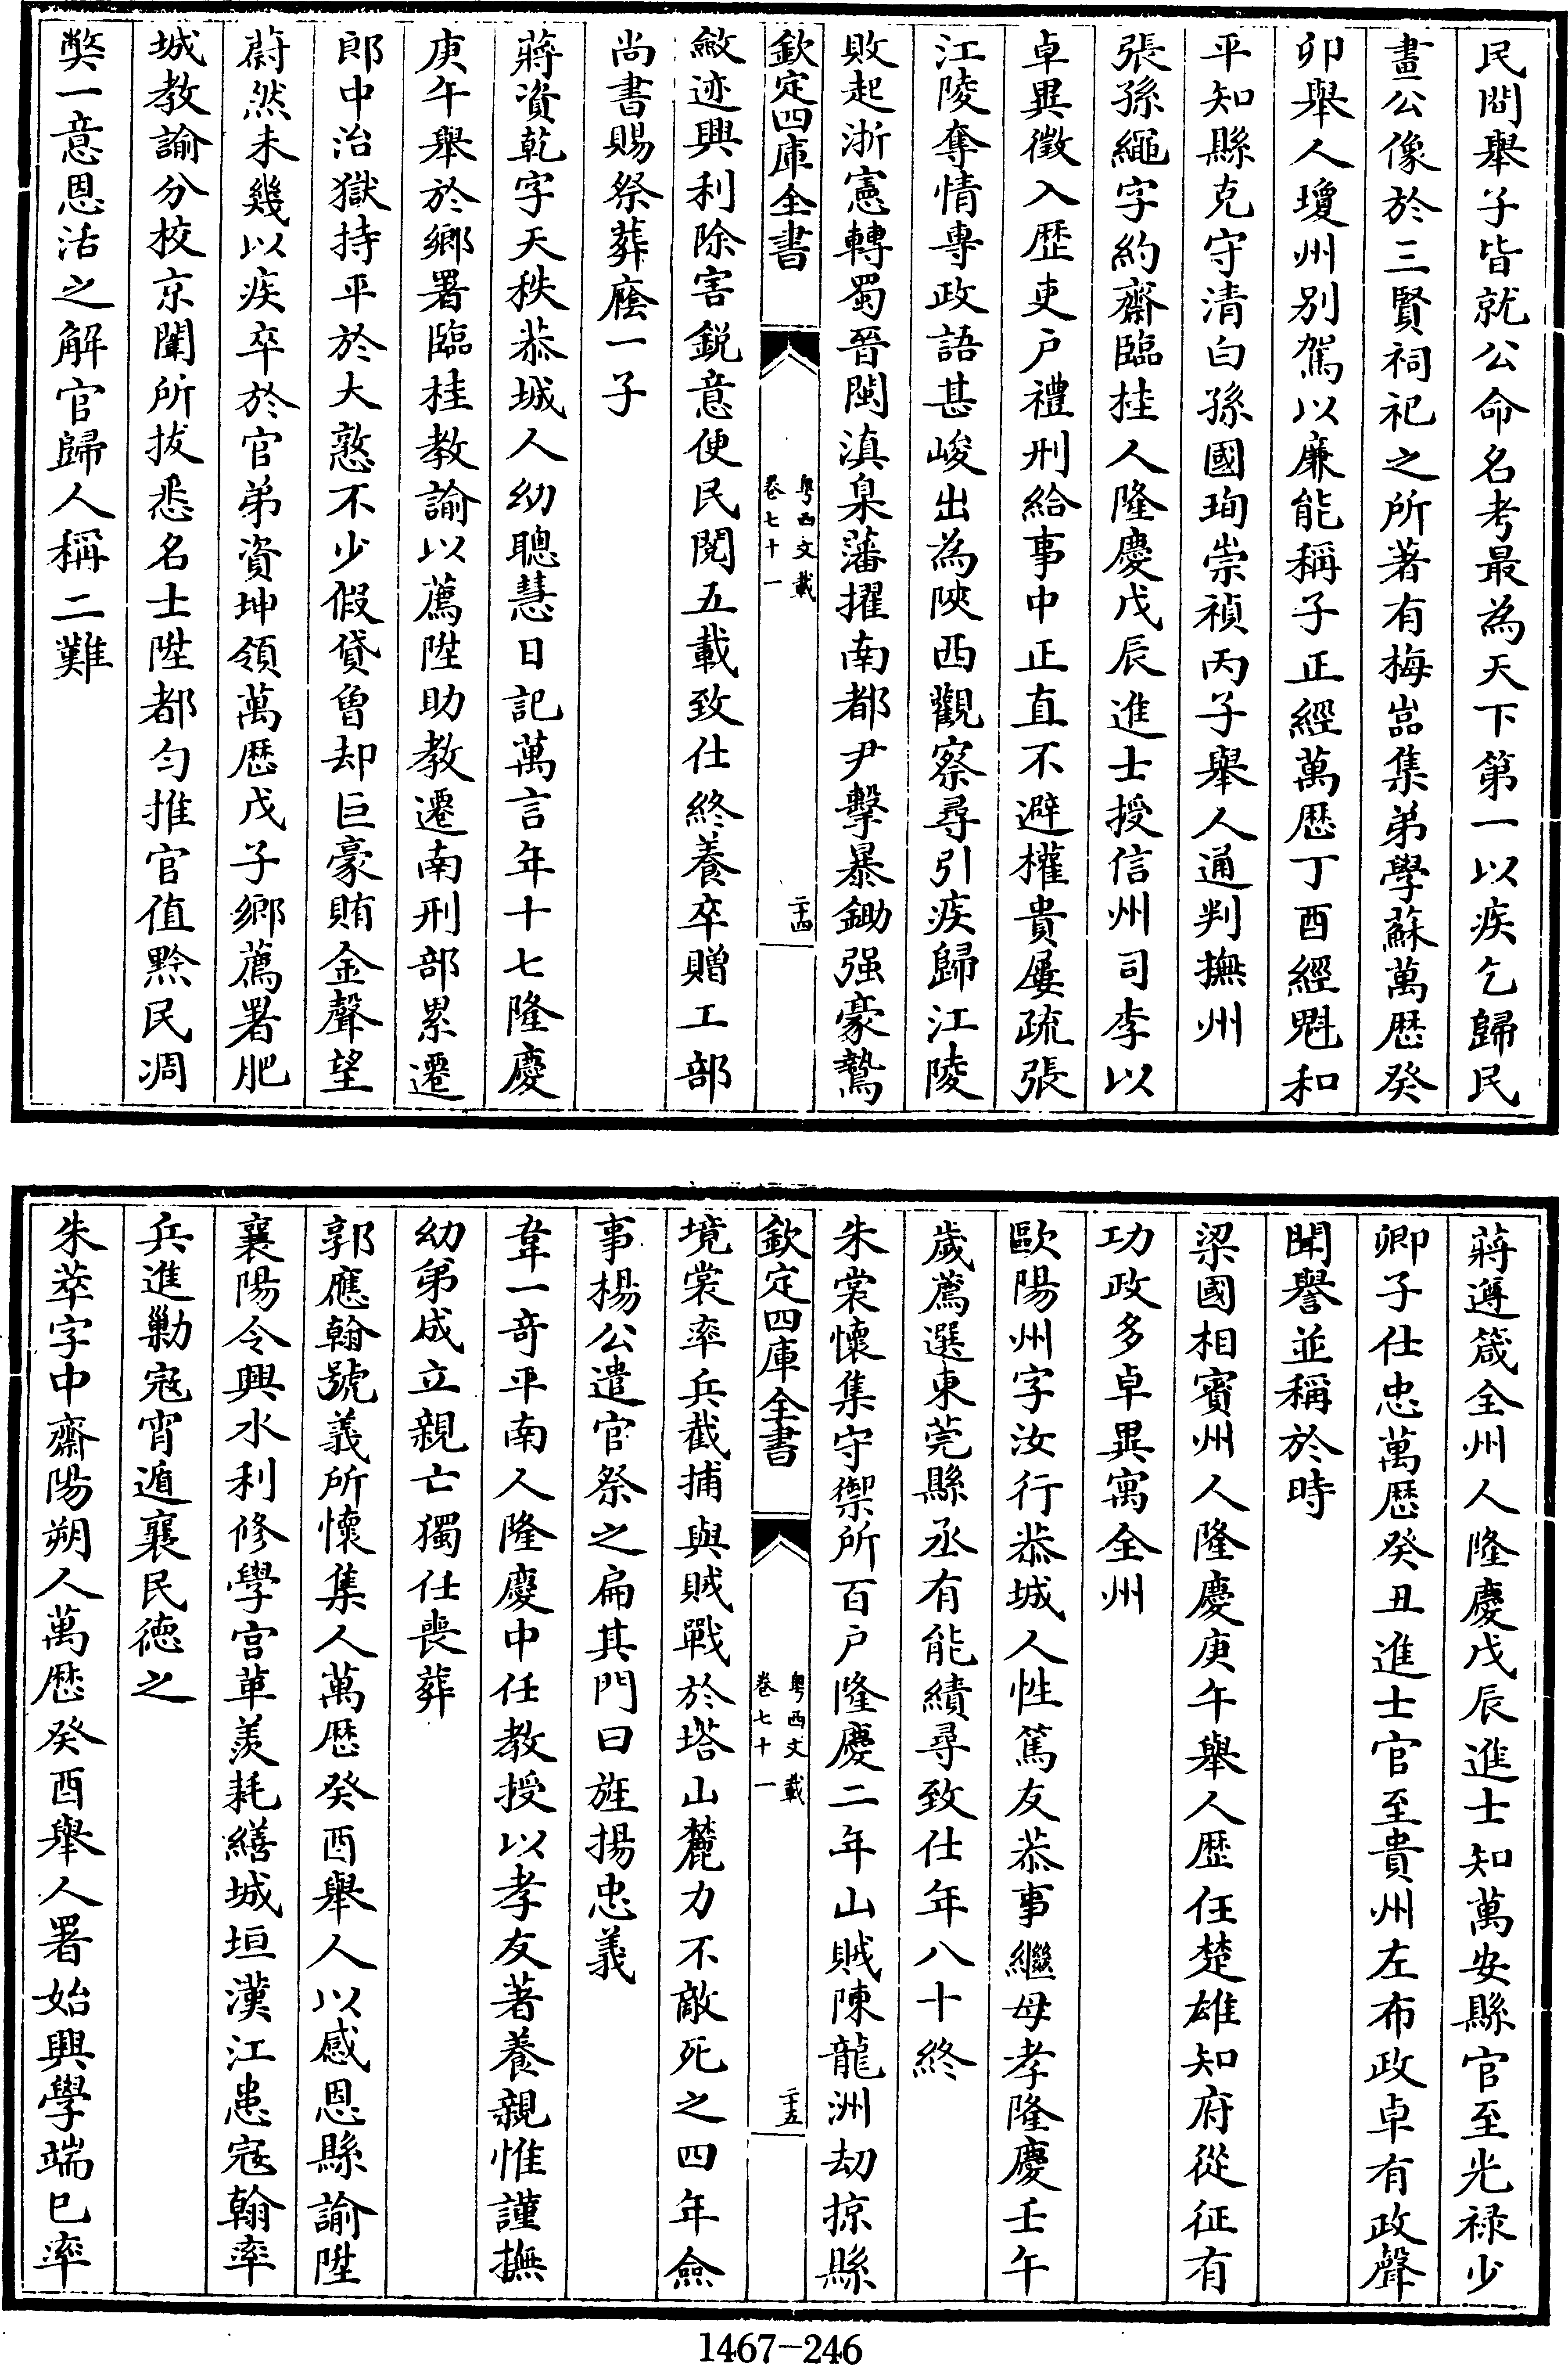 民間舉子皆就公命名考最為天下第一以疾乞歸民
畫公像於三賢祠祀之所著有梅嵓集弟學蘇萬歴癸
卯舉人瓊州别駕以廉能稱子正經萬歴丁酉經魁和
平知縣克守清白孫國珣崇禎丙子舉人通判撫州
張孫繩字約齋臨桂人隆慶戊辰進士授信州司李以
卓異徵入歴吏户禮刑給事中正直不避權貴屢疏張
江陵奪情專政語甚峻出為陜西觀察尋引疾歸江陵
敗起浙憲轉蜀晉閩滇臬藩擢南都尹擊暴鋤强豪鷙
欽定四庫全書
粤西文載
卷七十一
二十四
斂迹興利除害鋭意便民閱五載致仕終養卒贈工部
尚書賜祭葬廕一子
蔣資乾字天秩恭城人幼聰慧日記萬言年十七隆慶
庚午舉於鄉署臨桂教諭以薦陞助教遷南刑部累遷
郎中治獄持平於大憝不少假貸曾却巨豪賄金聲望
蔚然未幾以疾卒於官弟資坤領萬歴戊子鄉薦署肥
城教諭分校京闈所拔悉名士陞都勻推官值黔民凋
弊一意恩活之解官歸人稱二難
蔣遵箴全州人隆慶戊辰進士知萬安縣官至光禄少
卿子仕忠萬歴癸丑進士官至貴州左布政卓有政聲
聞譽並稱於時
梁國相賓州人隆慶庚午舉人歴任楚雄知府從征有
功政多卓異寓全州
歐陽州字汝行恭城人性篤友恭事繼母孝隆慶壬午
歲薦選東莞縣丞有能績尋致仕年八十終
朱裳懷集守禦所百户隆慶二年山賊陳龍洲刼掠縣
欽定四庫全書
粤西文載
卷七十一
二十五
境裳率兵截捕與賊戰於塔山麓力不敵死之四年僉
事楊公遣官祭之扁其門曰旌揚忠義
韋一奇平南人隆慶中任教授以孝友著養親惟謹撫
幼弟成立親亡獨任喪葬
郭應翰號義所懷集人萬歴癸酉舉人以感恩縣諭陞
襄陽令興水利修學宫革羡耗繕城垣漢江患寇翰率
兵進勦寇宵遁襄民徳之
朱萃字中齋陽朔人萬歴癸酉舉人署始興學端已率
1467-246